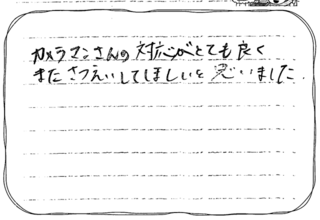 カメラマンさんの対応がとても良く
またさつえいしてほしいと思いました。